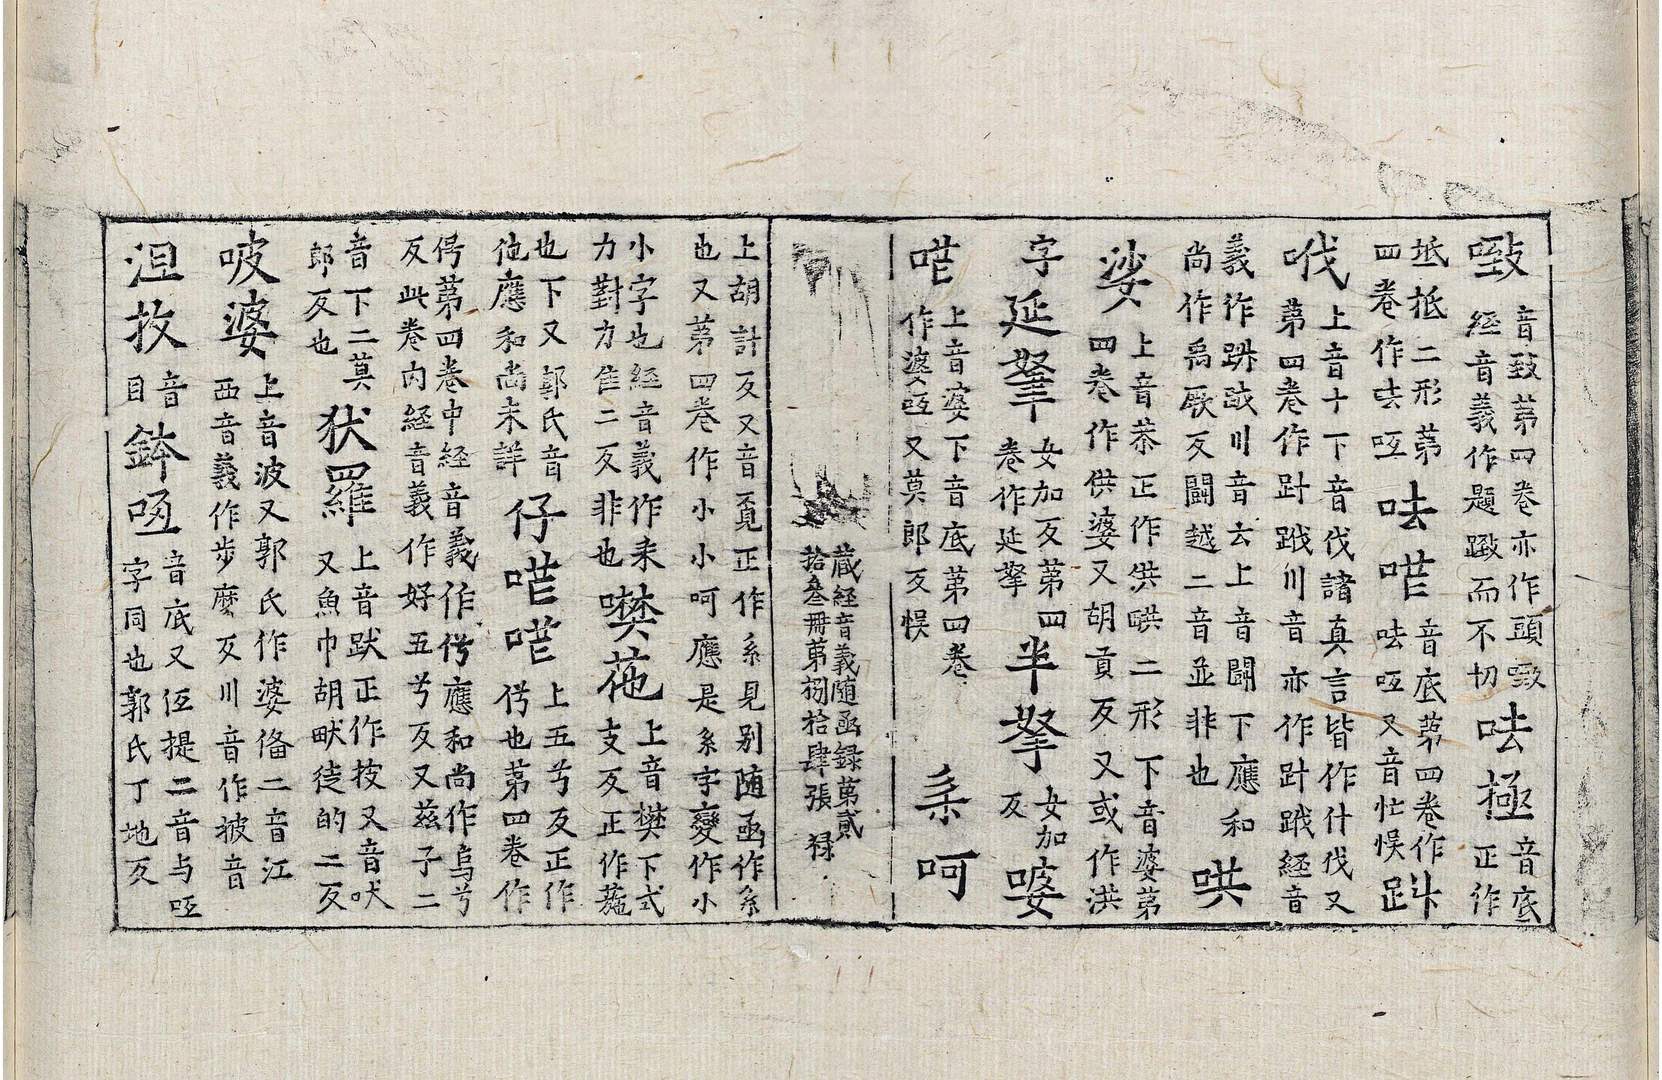 㗧 音致第四卷亦作頭㗧
經音義作題緻而不切 呿極 音底正作
坻抵二形第四卷作呿呧 呿喏 音底第四卷作呿呧又音忙悮 𧿒
㕹 上音十下音伐諸真言皆作什伐又
第四卷作計䟦川音亦作計䟦經音
義作跰䟦川音去上音闘下應和
尚作禹厥反闘越二音並非也 哄
娑 上音恭正作供㬴二形下音婆第
四卷作供婆又胡貢反又或作洪
字 延拏 女加反第四卷作延拏 半拏 女加反 㗑
喏 上音婆下音底第四卷
作婆呧又莫郎反悮 系呵
藏經音義随函録第貳
拾叁冊第捌拾肆張 禄
上胡計反又音覔正作系見別随函作系
也又第四卷作小小呵應是系字變作小
小字也經音義作來
力對力隹二反非也 㗼葹 上音樊下式
支反正作葹
也下又郭氏音
他應和尚未詳 仔喏喏 上五兮反正作
𠈷也第四卷作
𠈷第四卷中經音義作𠈷應和尚作烏兮
反此卷内經音義作好五兮反又茲子二
音下二莫
郎反也 狀羅 上音跋正作拔又音吠
又魚巾胡畎徒的二反
㖠婆 上音波又郭氏作婆俻二音江
西音義作步麼反川音作披音
沮抆 音目 鉢呧 音底又伍提二音与呧
字同也郭氏丁地反